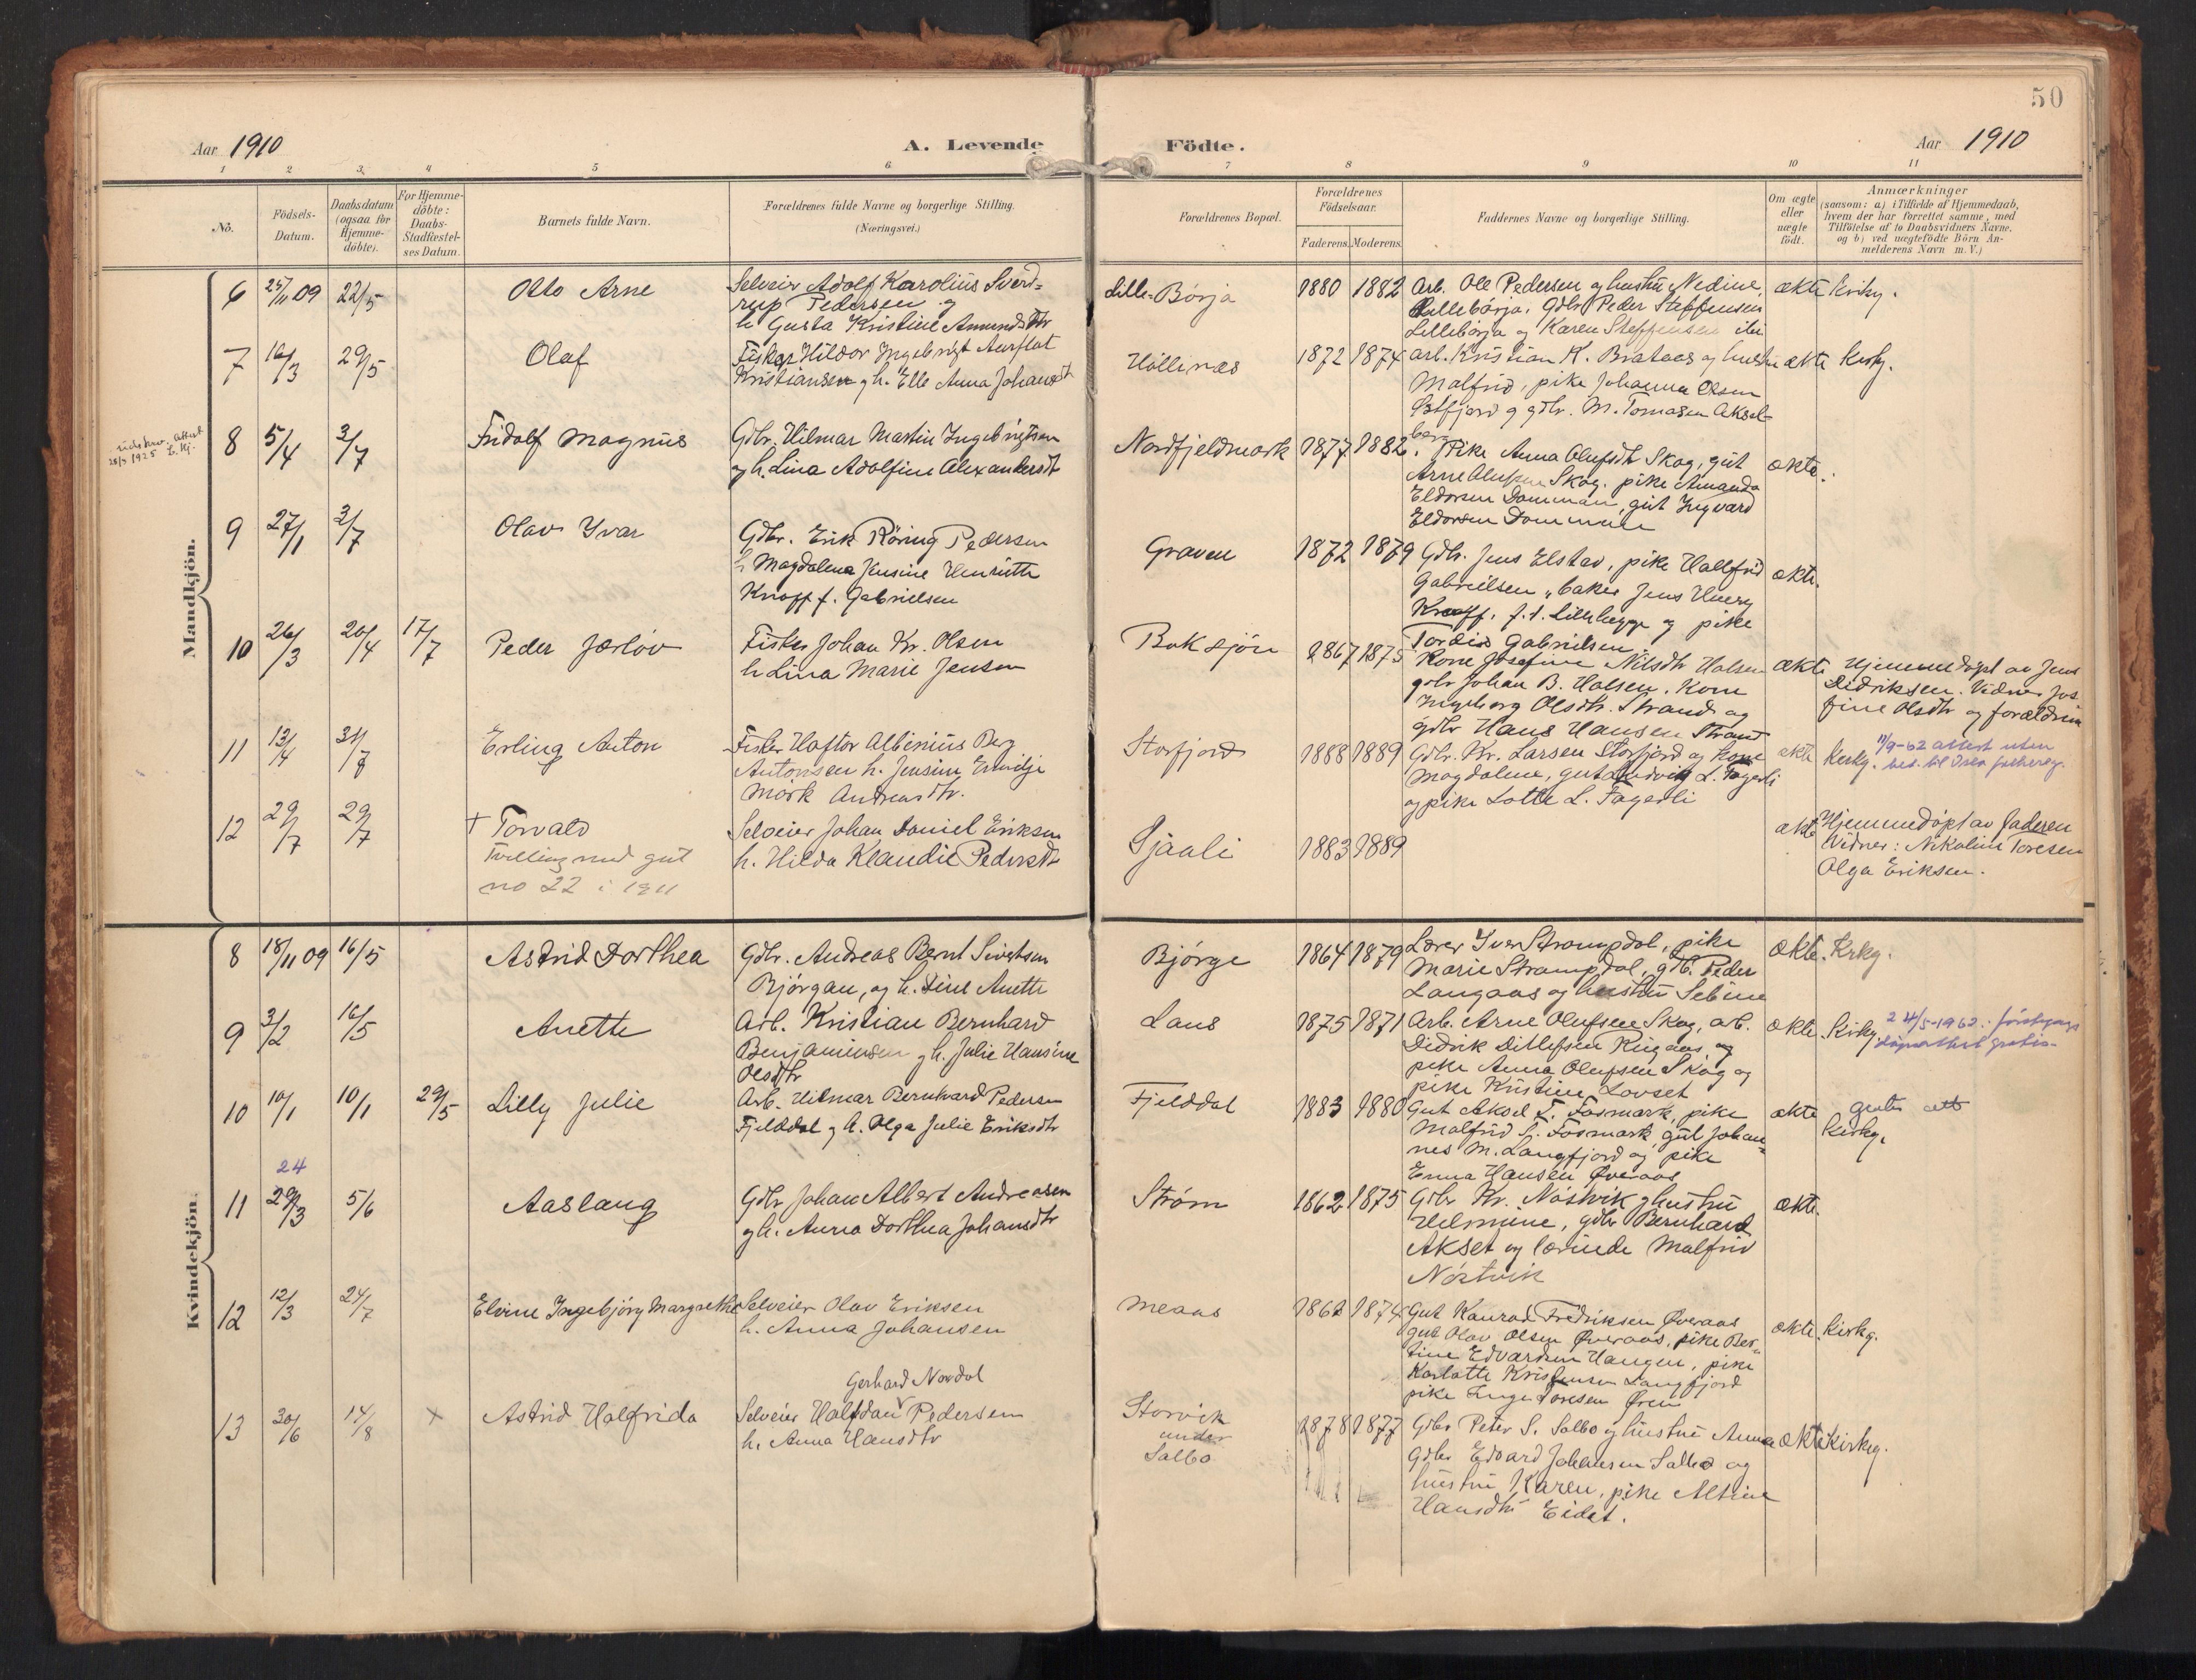 50
Aar 1910
A. Levende
Födte.
Aar 1910
1 2 3 4 5 6 7 8 9 10 11
No.
Födsels-
Datum.
Daabsdatum
(ogsaa for
Hjemme-
döbte).
For Hjemme-
döbte:
Daabs-
Stadfæstel-
ses Datum.
Barnets fulde Navn.
Forældrenes fulde Navne og borgerlige Stilling.
(Næringsvei.)
Forældrenes Bopæl.
Forældrenes
Födselsaar.
Faderens. Moderens.
Faddernes Navne og borgerlige Stilling.
Om ægte
eller
uægte
født.
Anmærkninger
(saasom: a) i Tilfælde af Hjemmedaab,
hvem der har forrettet samme, med
Tilföielse af to Daabsvidners Navne,
og b) ved uægtefödte Börn An-
melderens Navn m. V.)
Mandkjön.
6 25/11 09 22/5 Otto Arne
Selveier Adolf Karolius Sverd-
rup Pedersen og
h. Gusta Kristine Amundsdtr
Lille-Börja 1880 1882
Arb. Ole Pedersen og hustru Nedine,
Lillebörja, Gdbr Peder Steffensen
Lillebörja og Karen Steffensen ibi
ekte Kirkg.
7 16/3 29/5 Olaf
Fisker Hildor Ingebrigt Aurflat
Kristiansen og h. Elle Anna Johansdt
Hollenæs 1872 1874
arb. Kristian K. Brataas og hustru
Malfrid, pike Johanna Olsen
Østfjord og gdbr. M. Tomasen Aksel-
berg
ekte Kirkg.
28/3 1925
8 5/4 3/7 Fridolf Magnus
Gdbr. Hilmar Martin Ingebrigtsen
og h. Lina Adolfine Alexandersdt
Nordfjeldmark 1877 1882
Pike Anna Olufsdt Skog, gut
Arne Olufsen Skog. pike Amanda
Eldorsen Dommen, gut Ingvard
Eldorsen Dommen
ekte.
9 27/1 3/7 Olav Ivar
Gdbr. Erik Röring Pedersen
h Magdalena Jensine Henriette
Knoff f. Gabrielsen
Graven 1872 1879
Gdbr. Jens Elstad, pike Hallfrid
Gabrielsen, baker Jens Henry
Knoff, f. t. Lillehegge og pike
Tordis Gabrielsen
ekte.
10 26/3 20/4 17/7 Peder Jærlöv
Fisker Johan Kr. Olsen
h Lina Marie Jensen
Boksjön 1867 1875
Kone Josefine Nilsdtr Halsen
gdbr Johan B. Halsen. Kone
Ingeborg Olsdtr. Strand og
gdbr Hans Hansen Strand
ekte Hjemmedöpt av Jens
Didriksen. Vidner Jos.
fine Olsdtr og forældrene
11 13/4 31/7 Erling Anton
Fisker Haftor Albinius Berg
Antonsen h. Jensine Emilje
Mörk Andreasdtr.
Storfjord 1888 1889
Gdbr. Kr. Larsen Storfjord og kone
Magdaline, gut Ludvig L. Fagerli
og pike Lotte L. Fagerli
ekte Kirkg. 11/9-62 attest uten
bet. til Oslo folkereg.
12 29/7 29/7 + Torvald
Tvilling med gut
no 22 i 1911
Selveier Johan Daniel Eriksen
h. Hilda Klaudie Pedersdtr
Sjaali 1883 1889
ekte Hjemmedöpt av faderen
Vidner: Nikoline Toresen
Olga Eriksen.
Kvindekjön.
8 18/11 09 16/5 Astrid Dorthea
Gdbr. Andreas Bernt Sivertsen
Bjørgan, og h. Line Anette
Bjørge 1864 1879
Lærer Iver Strompdal, pike
Marie Strompdal, gdb. Peder
Langaas og hustru Sebine
ekte. Krkg.
9 3/2 16/5 Anette
Arb. Kristian Bernhard
Benjaminsen og h. Julie Hansine
Olsdtr
Laus 1875 1871
Arb. Arne Olufsen Skog, arb.
Didrik Ditlefsen Ringaas og
pike Anna Olufsen Skog og
pike Kristine Lovset
ekte. Kirkg. 24/5-1962. førstegangs
dåpsattest gratis.
10 10/1 10/1 29/5 Lilly Julie
Arb. Hilmar Bernhard Pedersen
Fjelddal og h. Olga Julie Eriksdtr
Fjelddal 1883 1880
Gut Aksel T. Fosmark, pike
Malfrid T. Fosmark, gut Johan-
nes M. Langfjord og pike
Enna Hansen Øveraas
ekte gratis att
Kirkg.
24
11 29/3 5/6 Aaslaug
Gdbr Johan Albert Andreasen
og h. Anna Dorthea Johansdtr
Strøm 1862 1875
Gdbr Kr. Nöstvik og hustru
Helmine, gdbr Bernhard
Akset og lærinde Malfrid
Nöstvik
ekte.
12 12/3 24/7 Elvine Ingebjörg Margrethe
Selveier Olav Eriksen
h. Anna Johansen
Meaas 1862 1874
Gut Konrad Fredriksen Øveraas
gut Olav Olsen Øveraas, pike Ber-
tine Edvardsen Haugen, pike
Karlotte Kristensen Langfjord
pike Inga Toresen Ören
ekte. Kirkg.
Gerhard Nordal
13 30/6 14/8 x Astrid Halfrida
Selveier Halfdan Pedersen
h. Anna Hansdtr
Storvik
under
Salbo
1878 1877
Gdbr Peter S. Salbo og hustru Anna
Gdbr Edvard Johansen Salbo og
hustru Karen, pike Altine
Hansdtr Eidet.
ekte Kirkeg.